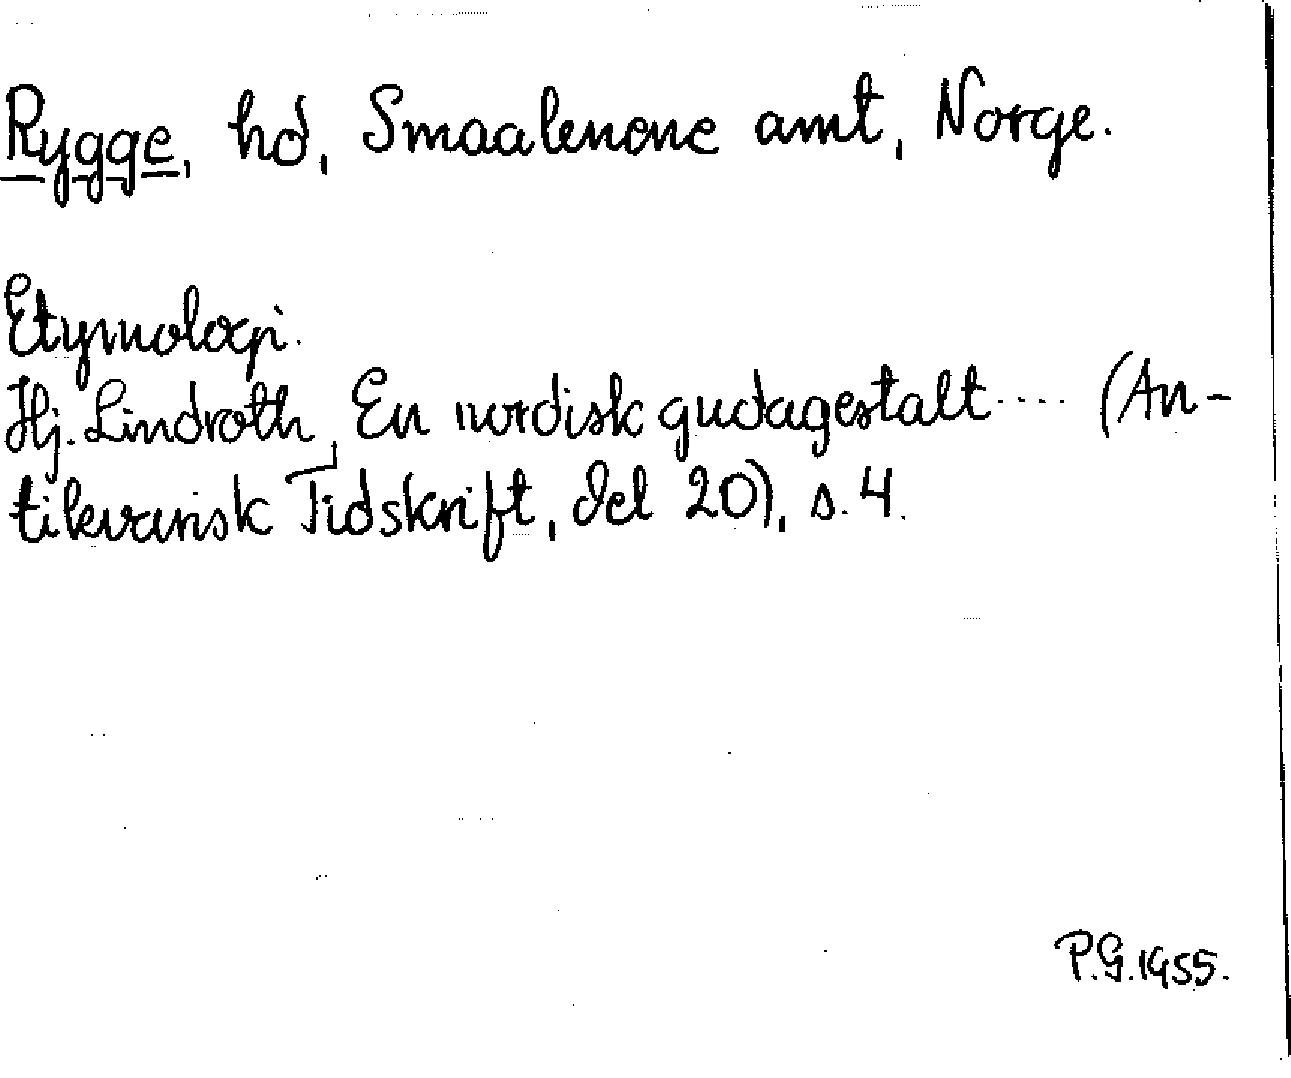 Rygge, hd, Smaalenene amt, Norge.
Etymologi.
Hj. Lindroth, En nordisk gudagestalt .... (An-
tikvarisk Tidskrift, del 20), s. 4.
P.G. 1955.